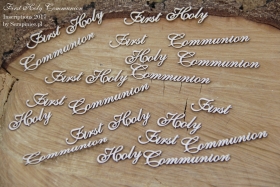 First Holy Communion
Inscriptions 2017
by Scrapiniec.pl
First Holy
Communion
First Holy
Communion
First Holy
Communion
First Holy
Communion
First Holy
Communion
First
Holy
Communion
First Communion
Holy Communion